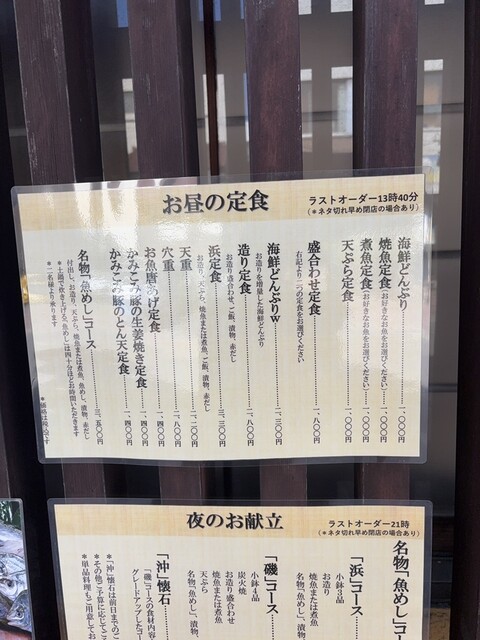 お昼の定食
ラストオーダー13時40分
(＊ネタ切れ早め閉店の場合あり)
海鮮どんぶり…………一、〇〇〇円
焼魚定食(お好きなお魚をお選びください)……一、〇〇〇円
煮魚定食(お好きなお魚をお選びください)……一、〇〇〇円
天ぷら定食…………一、〇〇〇円
盛合わせ定食…………一、八〇〇円
右記より二つの定食をお選びください
海鮮どんぶりW…………一、三〇〇円
お造りを増量した海鮮どんぶり
造り定食…………一、八〇〇円
お造り盛合わせ、ご飯、漬物、赤だし
浜定食…………三、三〇〇円
お造り、天ぷら、焼魚または煮魚、ご飯、漬物、赤だし
天重
穴重…………一、八〇〇円
お魚唐あげ定食…………一、四〇〇円
かみこみ豚の生姜焼き定食…………一、四〇〇円
かみこみ豚のとん天定食…………一、四〇〇円
名物「魚めし」コース…………三、五〇〇円
付出し、お造り、天ぷら、焼魚または煮魚、魚めし、漬物、赤だし
＊土鍋で炊き上げる「魚めし」は四十分ほどお時間いただきます
＊二名様より承ります
＊価格は税込です
夜のお献立
ラストオーダー21時
(＊ネタ切れ早め閉店の場合あり)
名物「魚めし」コ
「浜」コース
小鉢3品
お造り
焼魚または煮魚
名物「魚めし」、漬物、
「磯」コース
小鉢4品
炭火焼
お造り盛合わせ
焼魚または煮魚
天ぷら
名物「魚めし」、漬物、
「沖」懐石
「磯」コースの食材内容
グレードアップしたコ
＊「沖」懐石は前日までのご
＊その他ご予算に応じてご
＊単品料理もご用意してお